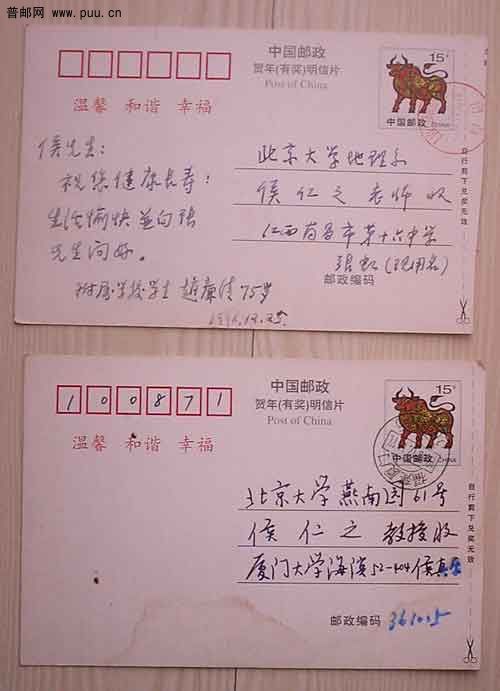 普邮网
www.puu.cn
中国邮政
贺年(有奖)明信片
Post of China
15分
中国邮政 CHINA
温馨 和谐 幸福
侯先生:
祝您健康长寿!
生活愉快並向张
先生问好。
附属学校学生 赵康清 75岁
北京大学地理系
侯仁之老师收
江西南昌市第十六中学
(现用名)
邮政编码
自行剪下兑奖无效
中国邮政
贺年(有奖)明信片
Post of China
15分
中国邮政 CHINA
100871
温馨 和谐 幸福
北京大学燕南园61号
侯仁之教授收
厦门大学海滨52-404侯真
邮政编码 361005
自行剪下兑奖无效